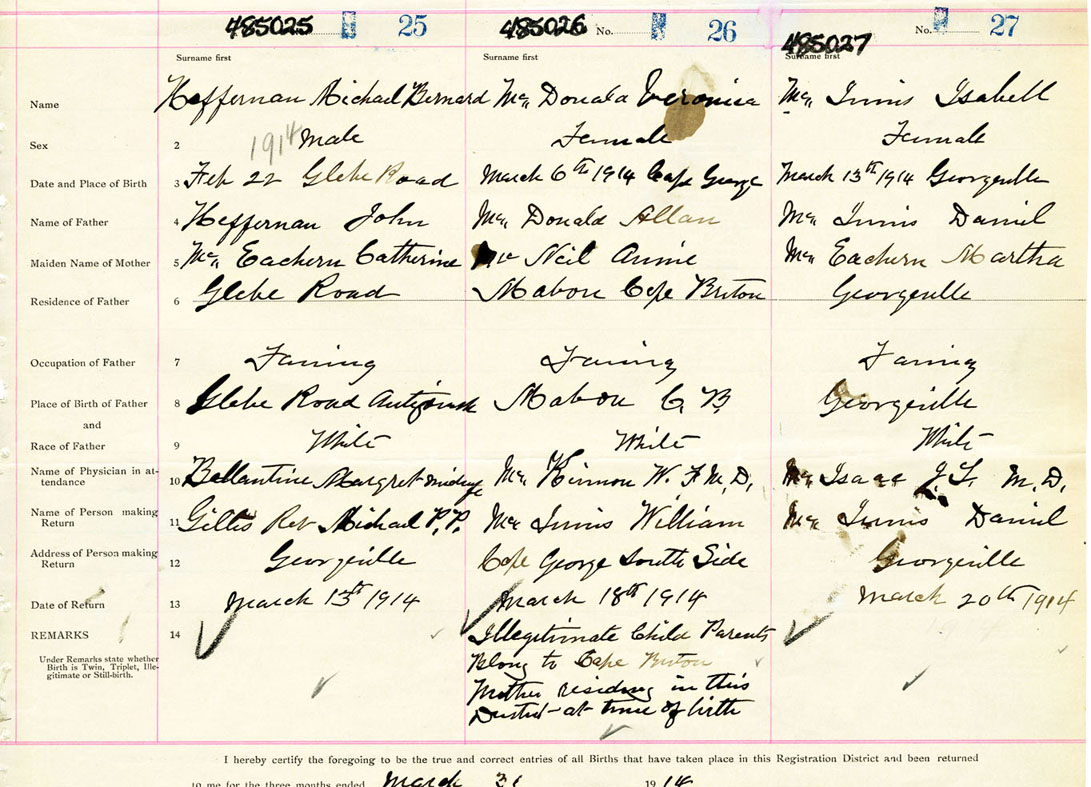 485025 25 485026 No. 26 485027 No. 27
Surname first Surname first Surname first
Name Heffernan Michael Bernard Mc Donald Veronica Mc Innis Isabell
Sex 2 1914 Male Female Female
Date and Place of Birth 3 Feb 22 Glebe Road March 6th 1914 Cape George March 13th 1914 Georgeville
Name of Father 4 Heffernan John Mc Donald Allan Mc Innis Daniel
Maiden Name of Mother 5 Mc Eachern Catherine Mc Neil Annie Mc Eachern Martha
Residence of Father 6 Glebe Road Mabou Cape Briton Georgeville
Occupation of Father 7 Faming Faming Faming
Place of Birth of Father 8 Glebe Road Antigonish Mabou C B Georgeville
and
Race of Father 9 White White White
Name of Physician in at-
tendance 10 Ballantine Margret Mc Kinnon W. F M.D. Mc Isaac J.L. M.D.
Name of Person making
Return 11 Gillis Rev Michael P.P. Mc Innis William Mc Innis Daniel
Address of Person making
Return 12 Georgeville Cape George South Side Georgeville
Date of Return 13 March 13th 1914 March 18th 1914 March 20th 1914
REMARKS 14 Illegitimate Child Parents
Under Remarks state whether
Birth is Twin, Triplet, Ille-
gitimate or Still-birth.
Belong to Cape Briton
Mother residing in this
District at time of birth
I hereby certify the foregoing to be the true and correct entries of all Births that have taken place in this Registration District and been returned
to me for the three months ended March 31 1914